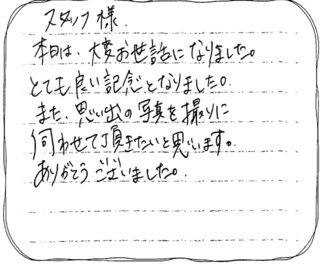 スタッフ様
本日は、大変お世話になりました。
とても良い記念となりました。
また、思い出の写真を撮りに
伺わせて頂きたいと思います。
ありがとうございました。